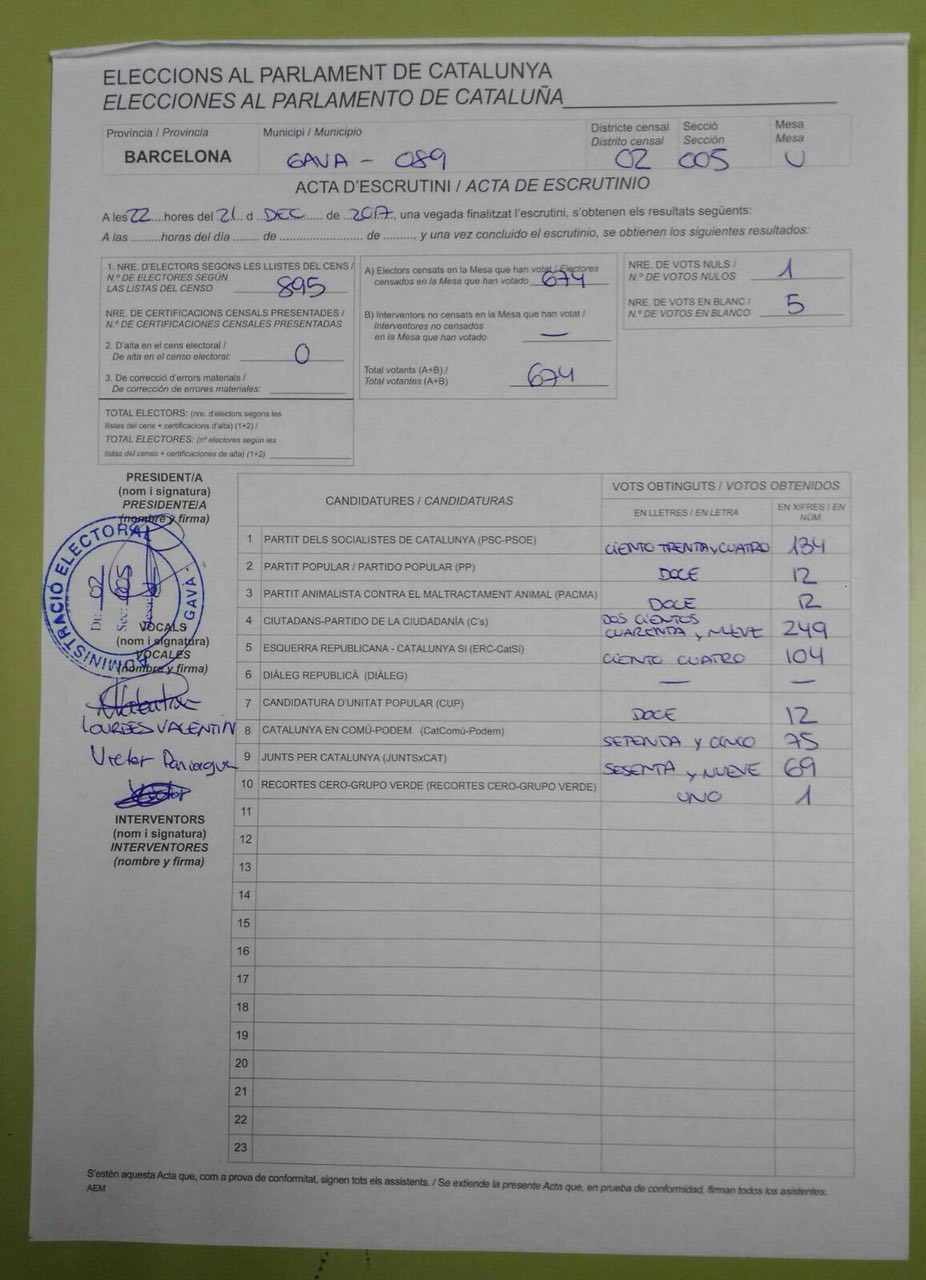 ELECCIONS AL PARLAMENT DE CATALUNYA
ELECCIONES AL PARLAMENTO DE CATALUÑA
Província / Provincia
BARCELONA
Municipi / Municipio
GAVA - 089
Districte censal
Distrito censal
02
Secció
Sección
005
Mesa
Mesa
U
ACTA D'ESCRUTINI / ACTA DE ESCRUTINIO
A les 22 hores del 21 d DEC de 2017, una vegada finalitzat l'escrutini, s'obtenen els resultats següents:
A las .........horas del día ........ de ......................... de ........., y una vez concluido el escrutinio, se obtienen los siguientes resultados:
1. NRE. D'ELECTORS SEGONS LES LLISTES DEL CENS /
N.º DE ELECTORES SEGÚN
LAS LISTAS DEL CENSO 895
NRE. DE CERTIFICACIONS CENSALS PRESENTADES /
N.º DE CERTIFICACIONES CENSALES PRESENTADAS
2. D'alta en el cens electoral /
De alta en el censo electoral: 0
3. De correcció d'errors materials /
De corrección de errores materiales:
TOTAL ELECTORS: (nre. d'electors segons les
llistes del cens + certificacions d'alta) (1+2) /
TOTAL ELECTORES: (nº electores según las
listas del censo + certificaciones de alta) (1+2)
A) Electors censats en la Mesa que han votat / Electores
censados en la Mesa que han votado 674
B) Interventors no censats en la Mesa que han votat /
Interventores no censados
en la Mesa que han votado —
Total votants (A+B) /
Total votantes (A+B) 674
NRE. DE VOTS NULS /
N.º DE VOTOS NULOS 1
NRE. DE VOTS EN BLANC /
N.º DE VOTOS EN BLANCO 5
PRESIDENT/A
(nom i signatura)
PRESIDENTE/A
(nombre y firma)
ADMINISTRACIÓ ELECTORAL
GAVÀ
Di: 02
Sec: 005
Mesa:
VOCALS
(nom i signatura)
VOCALES
(nombre y firma)
LOURDES VALENTIN
Victor Paniagua
INTERVENTORS
(nom i signatura)
INTERVENTORES
(nombre y firma)
CANDIDATURES / CANDIDATURAS
VOTS OBTINGUTS / VOTOS OBTENIDOS
EN LLETRES / EN LETRA
EN XIFRES / EN NÚM.
1 PARTIT DELS SOCIALISTES DE CATALUNYA (PSC-PSOE) CIENTO TRENTA Y CUATRO 134
2 PARTIT POPULAR / PARTIDO POPULAR (PP) DOCE 12
3 PARTIT ANIMALISTA CONTRA EL MALTRACTAMENT ANIMAL (PACMA) DOCE 12
4 CIUTADANS-PARTIDO DE LA CIUDADANÍA (C's) DOS CIENTOS CUARENTA Y NUEVE 249
5 ESQUERRA REPUBLICANA - CATALUNYA SI (ERC-CatSí) CIENTO CUATRO 104
6 DIÀLEG REPUBLICÀ (DIÀLEG) — —
7 CANDIDATURA D'UNITAT POPULAR (CUP) DOCE 12
8 CATALUNYA EN COMÚ-PODEM (CatComú-Podem) SETENTA Y CINCO 75
9 JUNTS PER CATALUNYA (JUNTSxCAT) SESENTA Y NUEVE 69
10 RECORTES CERO-GRUPO VERDE (RECORTES CERO-GRUPO VERDE) UNO 1
11
12
13
14
15
16
17
18
19
20
21
22
23
S'estén aquesta Acta que, com a prova de conformitat, signen tots els assistents. / Se extiende la presente Acta que, en prueba de conformidad, firman todos los asistentes.
AEM